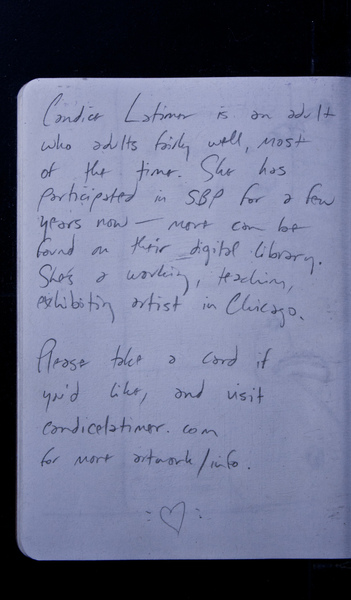 Candice Latimer is an adult
who adults fairly well, most
of the time. She has
participated in SBP for a few
years now — more can be
found on their digital library.
She's a working, teaching,
exhibiting artist in Chicago.
Please take a card if
you'd like, and visit
candicelatimer.com
for more artwork/info.